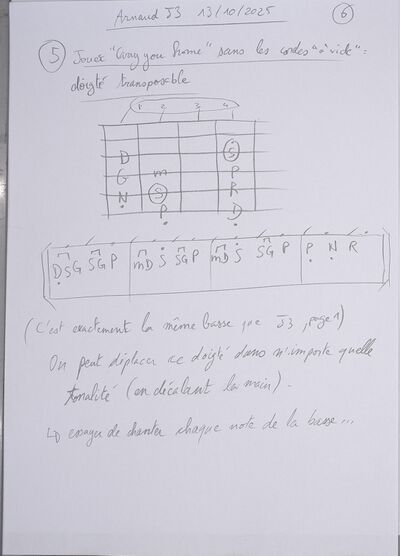 Arnaud J3 13/10/2025 6
5 Jouer "Carry you home" sans les cordes "à vide" :
doigté transposable
1 2 3 4
D S
G m P
N S R
P D
D S G S G P m D S S G P m D S S G P P N R
(C'est exactement la même basse que J3, page 1)
On peut déplacer ce doigté dans n'importe quelle
tonalité (en décalant la main).
↳ essayer de chanter chaque note de la basse...